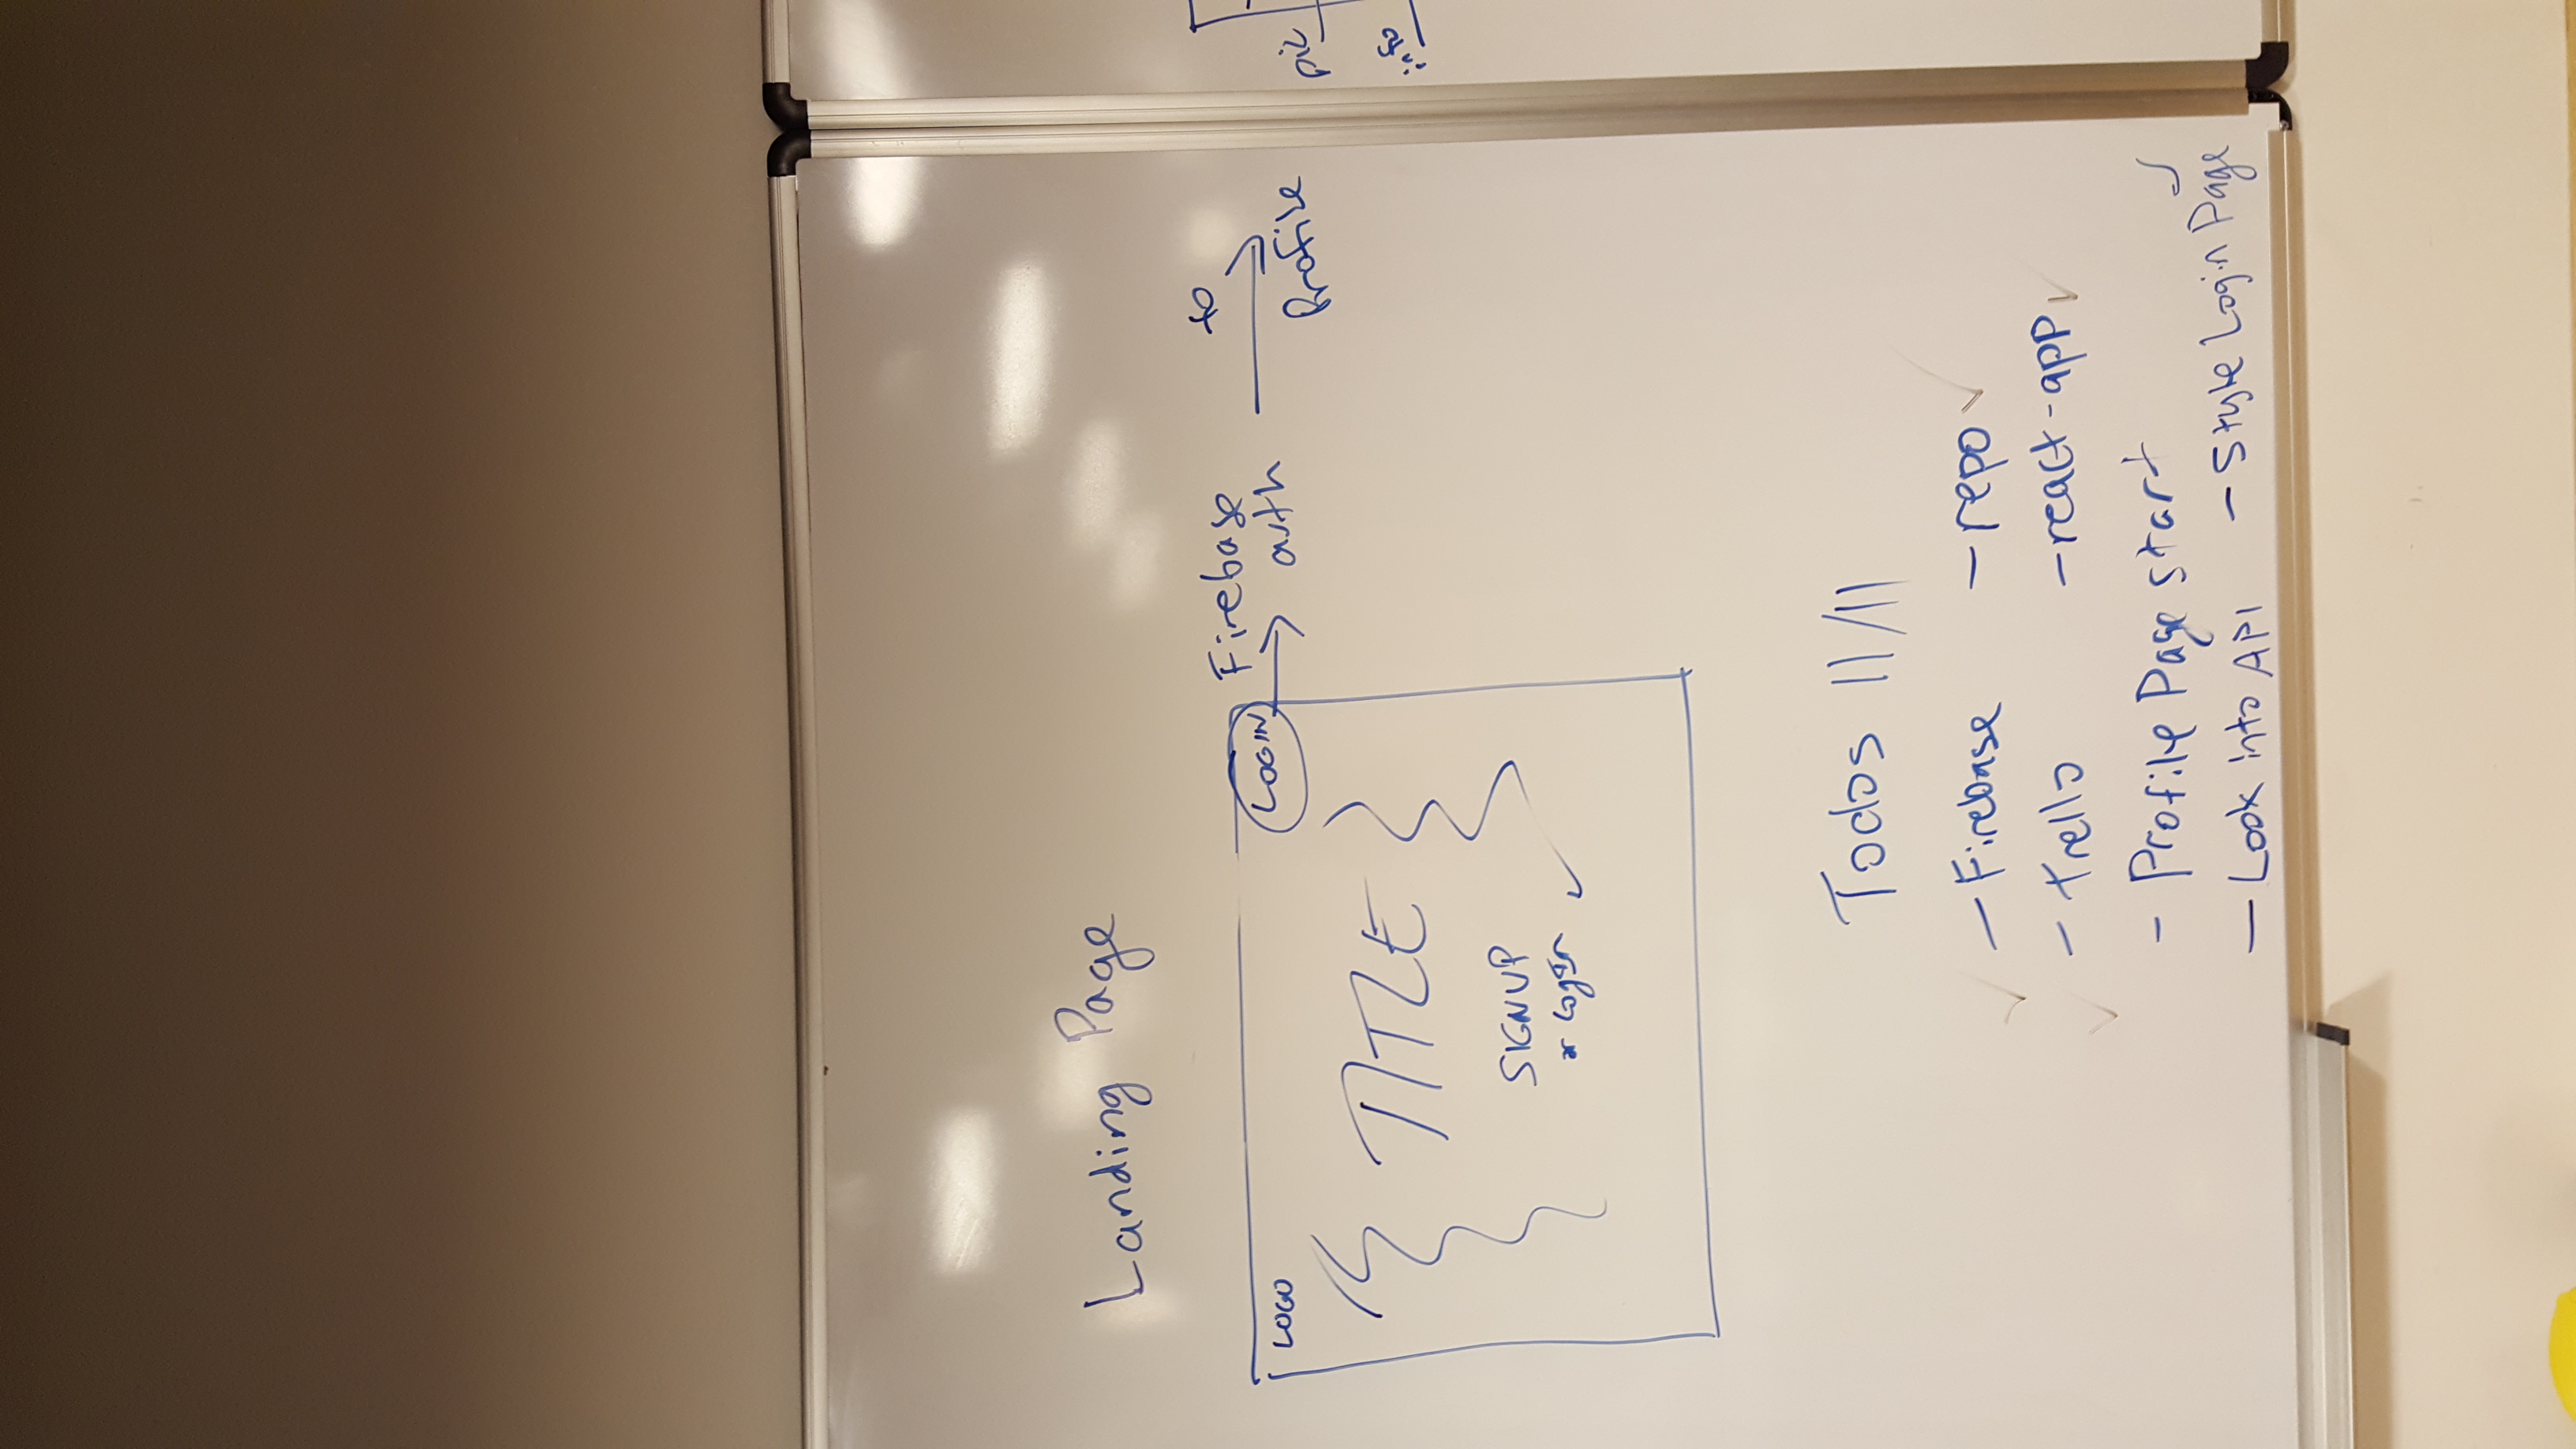 Landing Page
LOGO
LOGIN
Firebase
auth
to
Profile
TITLE
SIGNUP
or login
pic
info
Todos 11/11
- Firebase - repo
- Trello - react-app
- Profile Page start
- Look into API - Style Login Page